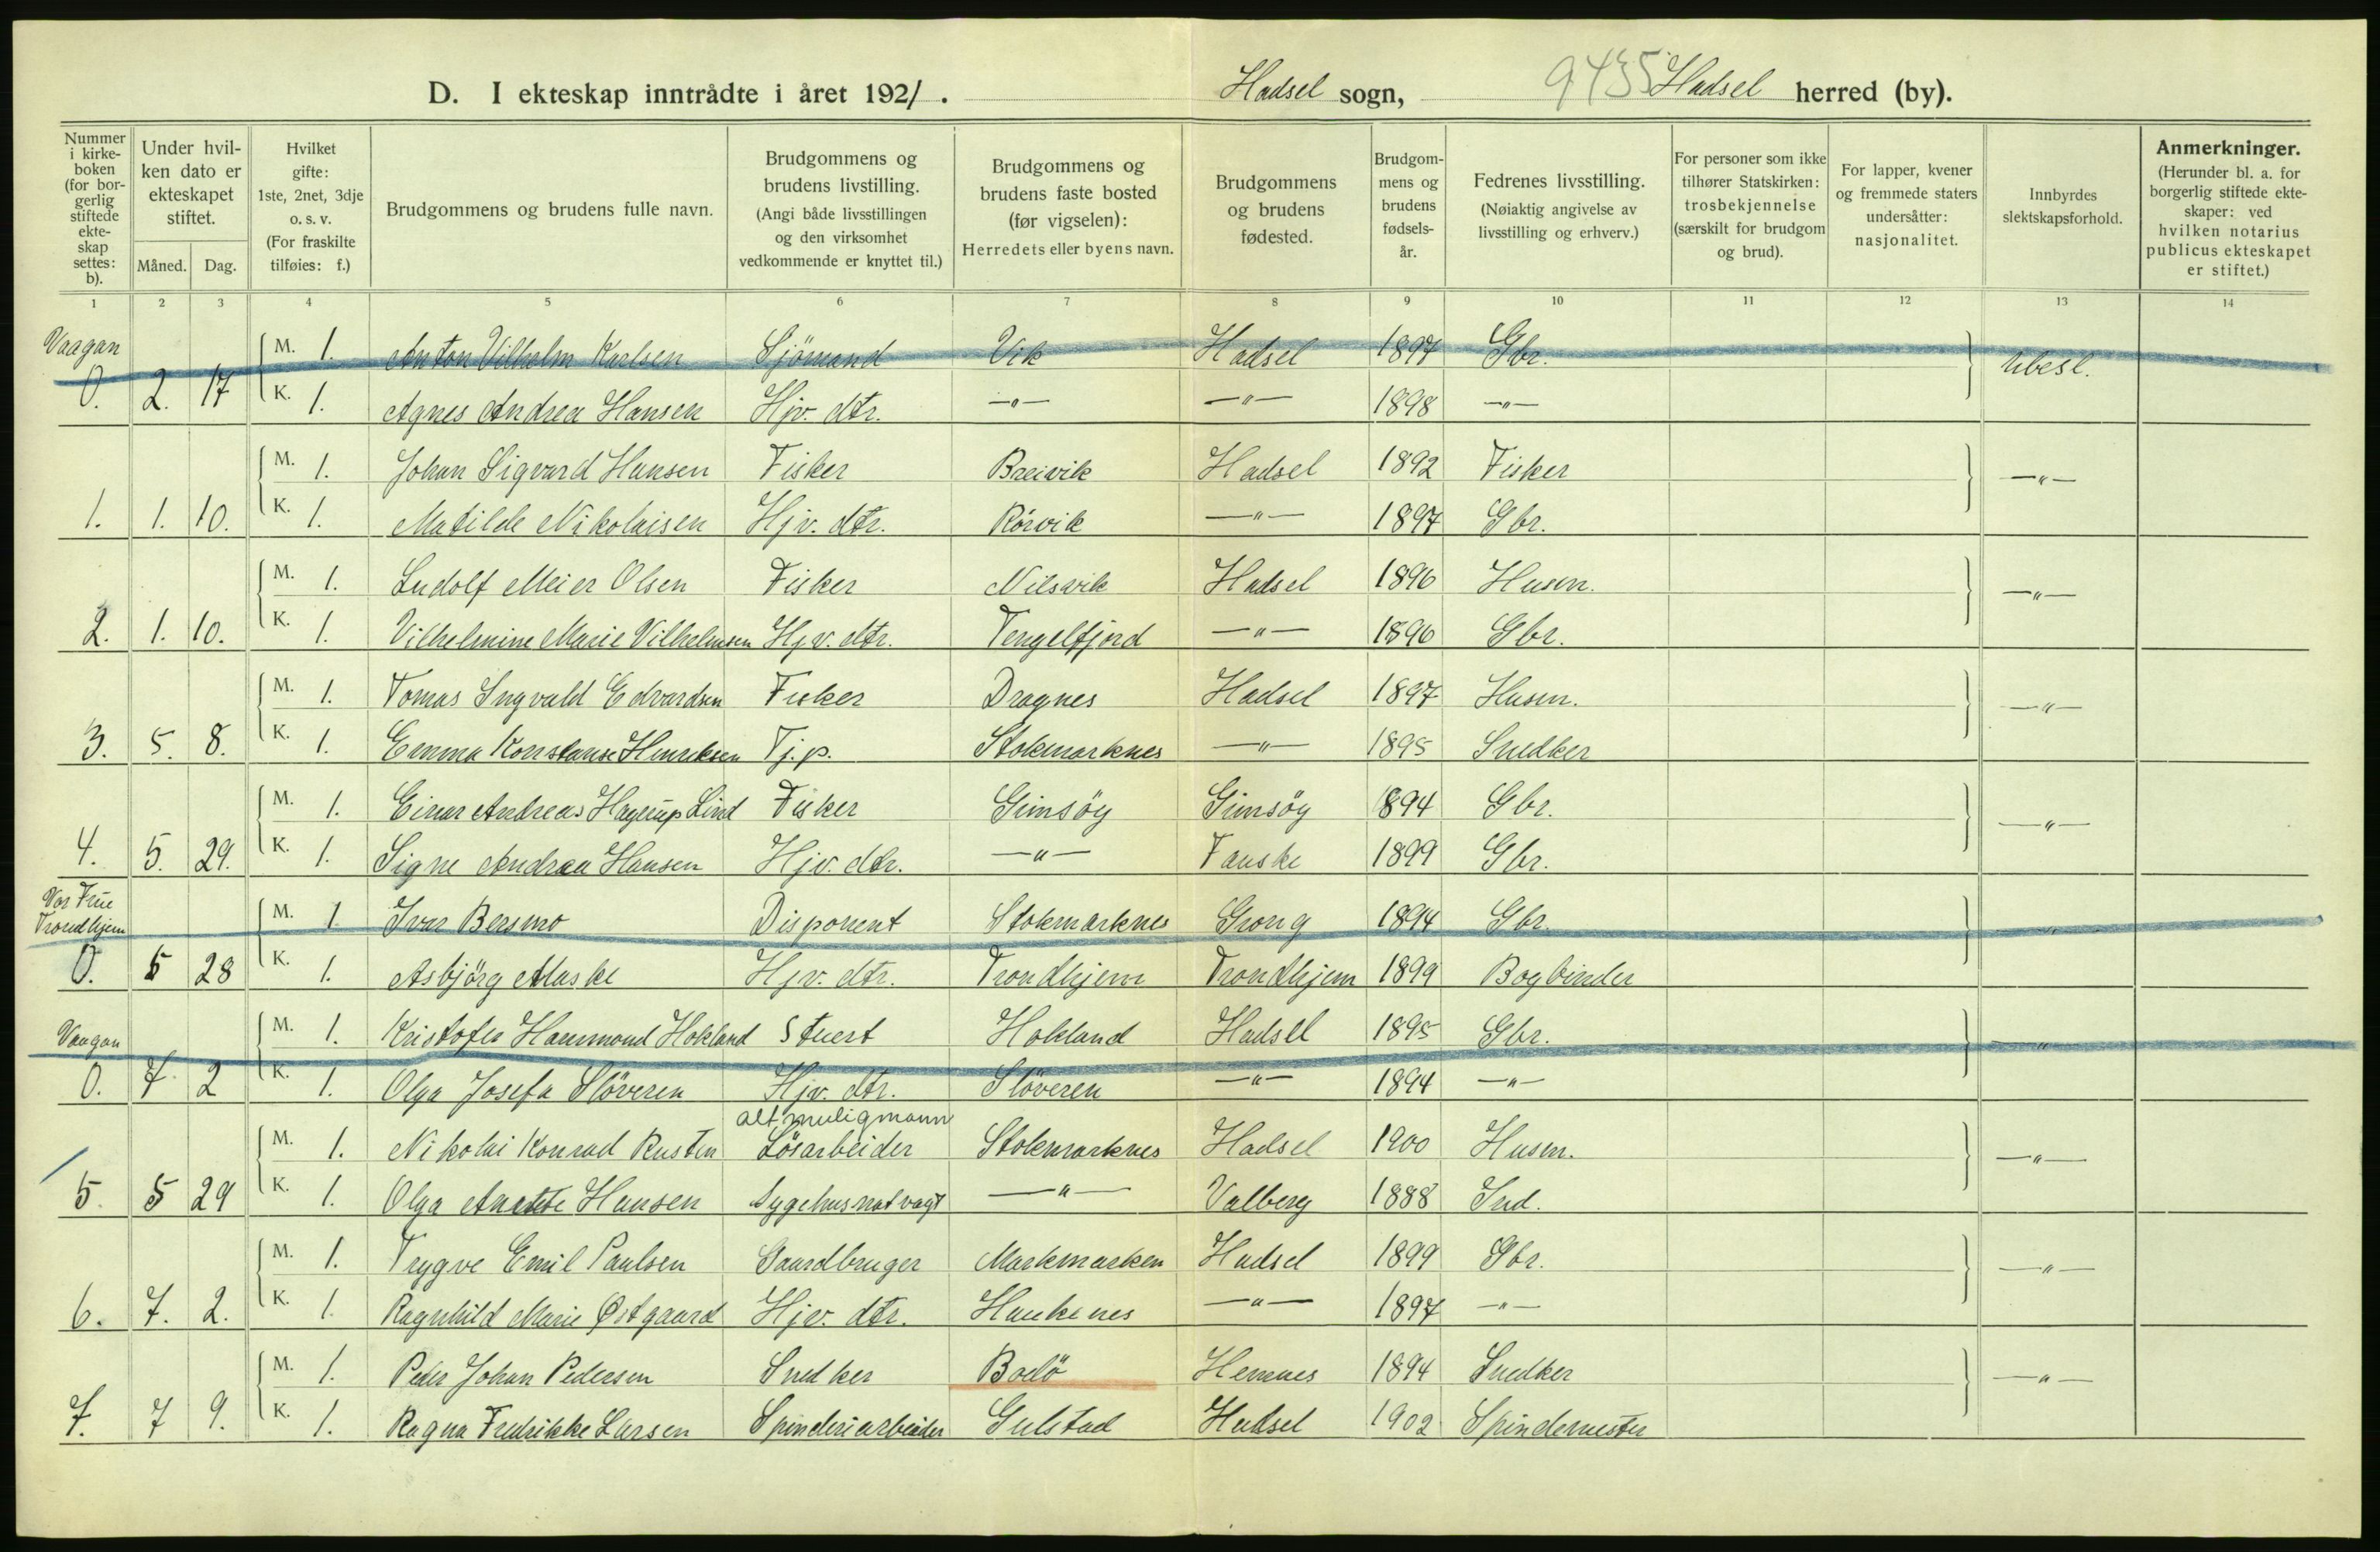 D. I ekteskap inntrådte i året 1921. Hadsel sogn, 9435 Hadsel herred (by).
Nummer i kirke-boken (for bor-gerlig stiftede ekte-skap settes: b).
Under hvil-ken dato er ekteskapet stiftet.
Måned. Dag.
Hvilket gifte: 1ste, 2net, 3dje o. s. v. (For fraskilte tilføies: f.)
Brudgommens og brudens fulle navn.
Brudgommens og brudens livstilling. (Angi både livsstillingen og den virksomhet vedkommende er knyttet til.)
Brudgommens og brudens faste bosted (før vigselen): Herredets eller byens navn.
Brudgommens og brudens fødested.
Brudgom-mens og brudens fødsels-år.
Fedrenes livsstilling. (Nøiaktig angivelse av livsstilling og erhverv.)
For personer som ikke tilhører Statskirken: trosbekjennelse (særskilt for brudgom og brud).
For lapper, kvener og fremmede staters undersåtter: nasjonalitet.
Innbyrdes slektskapsforhold.
Anmerkninger. (Herunder bl. a. for borgerlig stiftede ekte-skaper: ved hvilken notarius publicus ekteskapet er stiftet.)
1 2 3 4 5 6 7 8 9 10 11 12 13 14
Vaagan M. 1. Anton Vilhelm Karlsen Sjömand Vik Hadsel 1897 Gbr. ubesl.
0. 2. 17 K. 1. Agnes Andrea Hansen Hjv. dtr. —"— —"— 1898 —"—
M. 1. Johan Sigvard Hansen Fisker Breivik Hadsel 1892 Fisker —"—
1. 1. 10. K. 1. Matilde Nikolaisen Hjv. dtr. Rörvik —"— 1897 Gbr.
M. 1. Ludolf Meier Olsen Fisker Nilsvik Hadsel 1896 Husm. —"—
2. 1. 10. K. 1. Vilhelmine Marie Vilhelmsen Hjv. dtr. Tengelfjord —"— 1896 Gbr.
M. 1. Tomas Ingvald Edvardsen Fisker Dragnes Hadsel 1897 Husm. —"—
3. 5. 8. K. 1. Emma Konstanse Henriksen Tj.p. Stokmarknes —"— 1895 Snedker
M. 1. Einar Andreas Hagerup Lind Fisker Gimsöy Gimsöy 1894 Gbr. —"—
4. 5. 29. K. 1. Signe Andrea Hansen Hjv. dtr. —"— Fauske 1899 Gbr.
Vor Frue Trondhjem M. 1 Ivar Bersmo Disponent Stokmarknes Grong 1894 Gbr. —"—
0. 5 28 K. 1. Asbjörg Aluske Hjv. dtr. Trondhjem Trondhjem 1899 Bogbinder
Vaagan M. 1. Kristofer Hammond Hokland Stuert Hokland Hadsel 1895 Gbr. —"—
0. 7. 2 K. 1. Olga Josefa Slöveren Hjv. dtr. Slöveren —"— 1894 —"—
alt muligmann
M. 1. Nikolai Konrad Rusten Lösarbeider Stokmarknes Hadsel 1900 Husm. —"—
5. 5 29 K. 1. Olga Anette Hansen Sygehusnatvagt —"— Valberg 1888 Ind.
M. 1. Trygve Emil Paulsen Gaardbruger Markmarken Hadsel 1899 Gbr. —"—
6. 7. 2. K. 1. Ragnhild Marie Østgaard Hjv. dtr. Haukenes —"— 1897 —"—
M. 1. Peder Johan Pedersen Snedker Bodö Hemnes 1894 Snedker —"—
7. 7 9. K. 1. Ragna Fredrikke Larsen Spinderiarbeider Gulstad Hadsel 1902 Spindemester